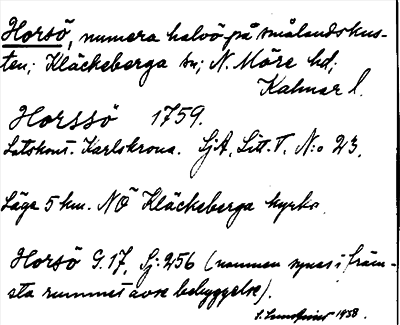 Horsö, numera halvö på smålandskus-
ten; Kläckeberga sn; N. Möre hd;
Kalmar l.
Horssö 1759.
Lotskont. Karlskrona. SjA, Litt. T. N:o 23.
Läge 5 km. NÖ Kläckeberga kyrka.
Horsö G.17, Sj:256 (namnen synes i främ-
sta rummet avse bebyggelse).
1938.